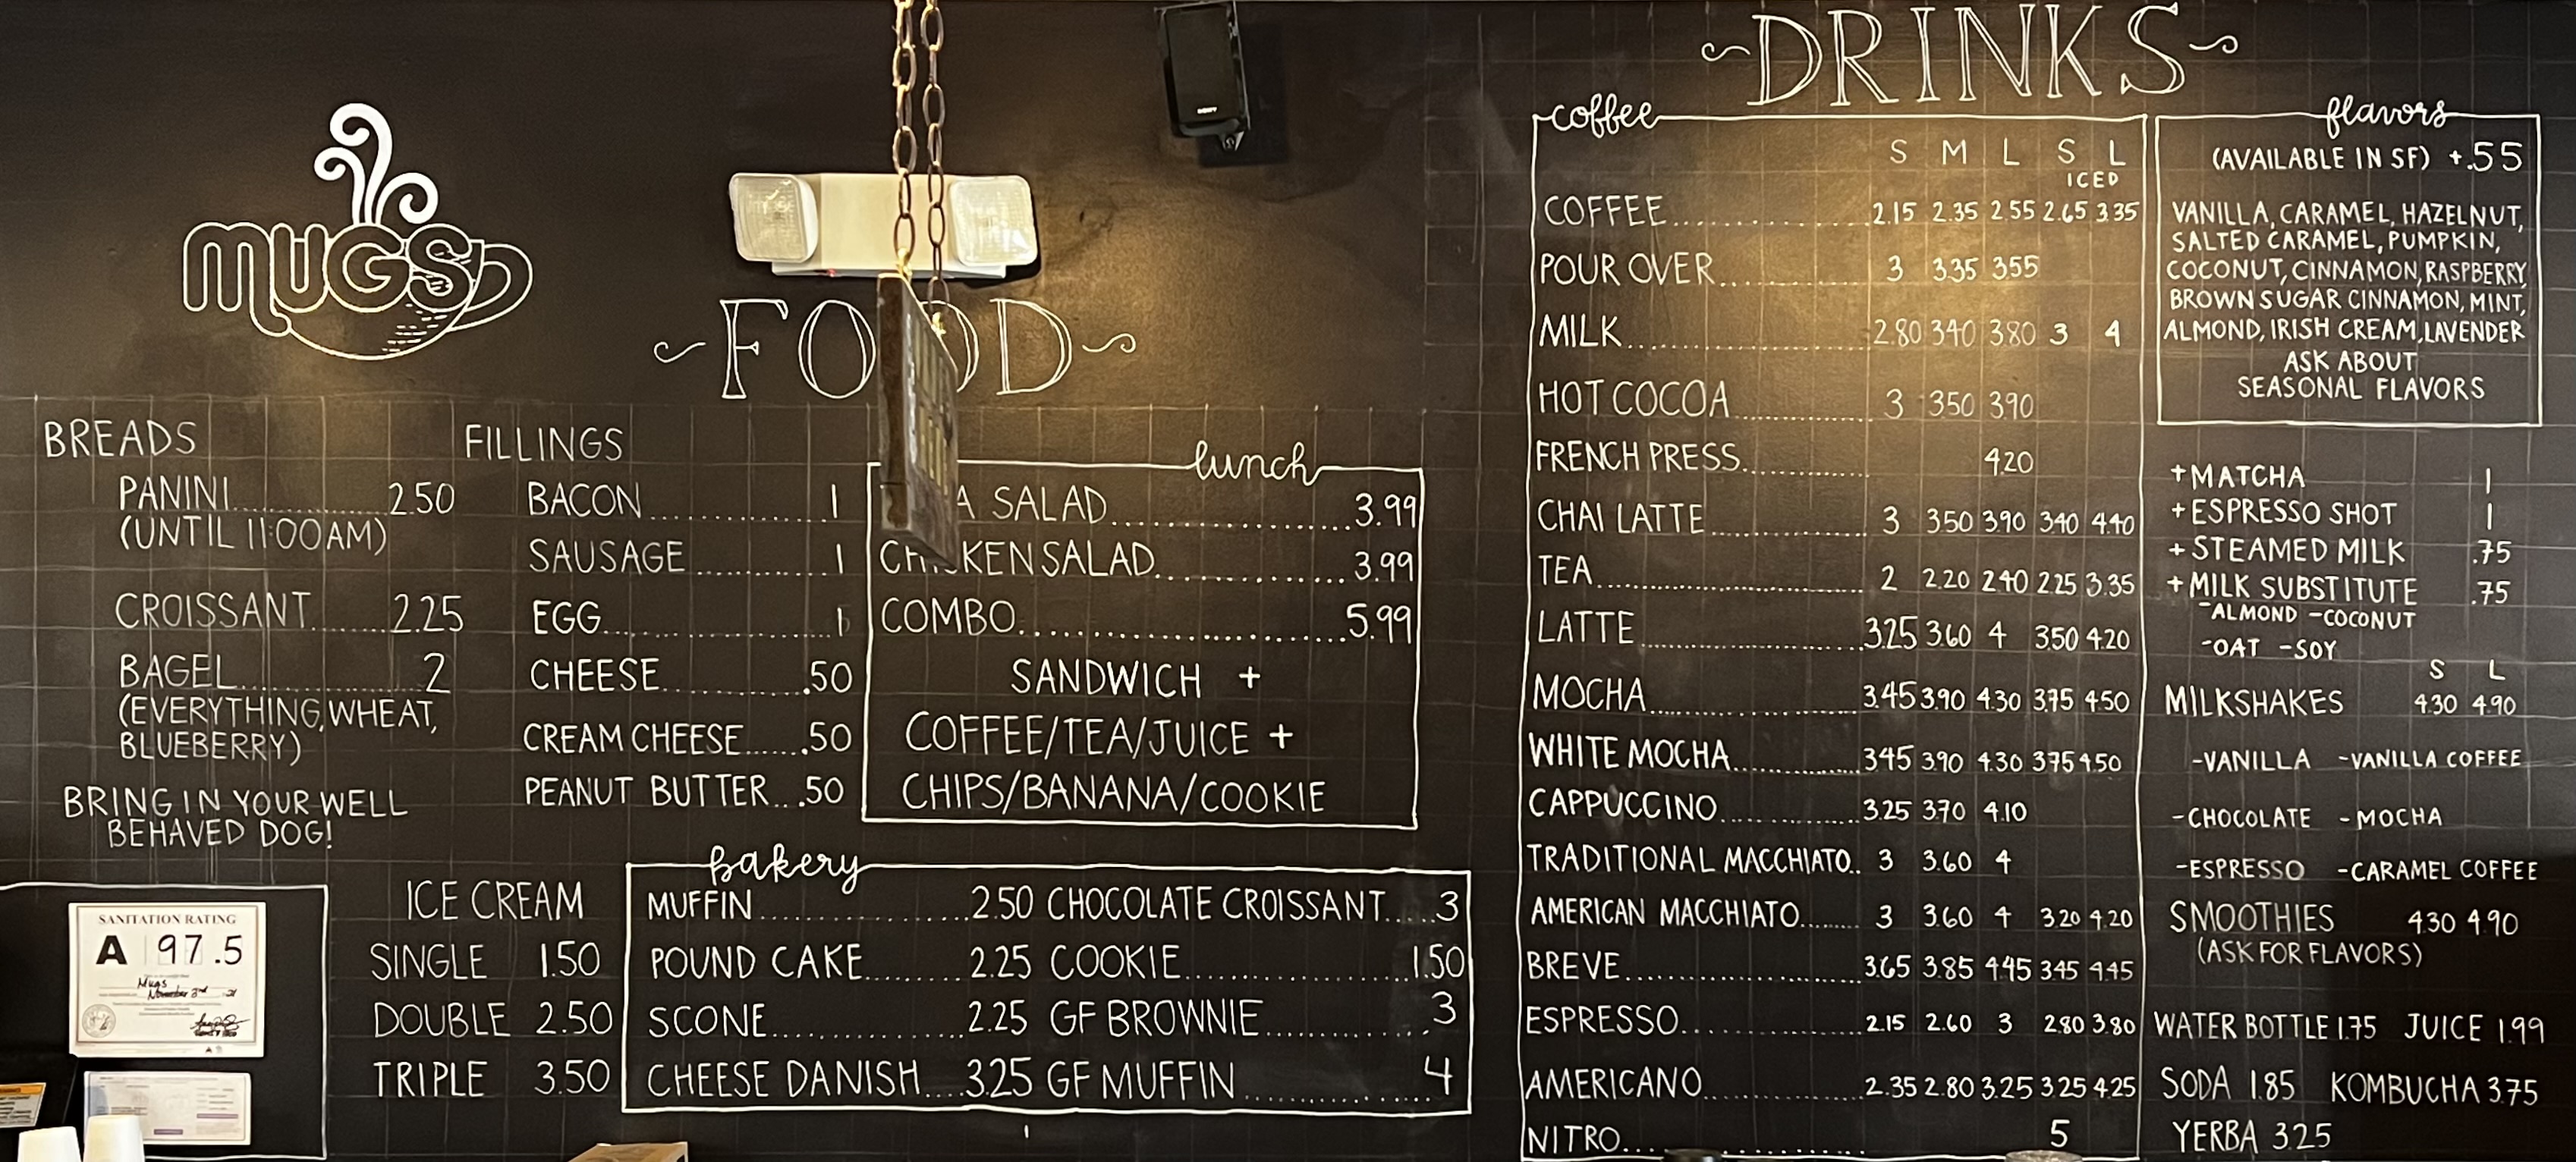 MUGS
FOOD
BREADS
PANINI.......2.50
(UNTIL 11:00AM)
CROISSANT.......2.25
BAGEL.......2
(EVERYTHING, WHEAT,
BLUEBERRY)
BRING IN YOUR WELL
BEHAVED DOG!
FILLINGS
BACON.......1
SAUSAGE.......1
EGG.......1
CHEESE.......50
CREAM CHEESE.......50
PEANUT BUTTER...50
lunch
SALAD.......3.99
CHICKEN SALAD.......3.99
COMBO.......5.99
SANDWICH +
COFFEE/TEA/JUICE +
CHIPS/BANANA/COOKIE
SANITATION RATING
A 97.5
Mugs
November 3rd 21
ICE CREAM
SINGLE 1.50
DOUBLE 2.50
TRIPLE 3.50
bakery
MUFFIN.......2.50 CHOCOLATE CROISSANT.....3
POUND CAKE.......2.25 COOKIE.......1.50
SCONE.......2.25 GF BROWNIE.......3
CHEESE DANISH....3.25 GF MUFFIN.......4
DRINKS
coffee
S M L S L
ICED
COFFEE.......2.15 2.35 2.55 2.65 3.35
POUR OVER.......3 3.35 3.55
MILK.......2.80 3.40 3.80 3 4
HOT COCOA.......3 3.50 3.90
FRENCH PRESS.......4.20
CHAI LATTE.......3 3.50 3.90 3.40 4.40
TEA.......2 2.20 2.40 2.25 3.35
LATTE.......3.25 3.60 4 3.50 4.20
MOCHA.......3.45 3.90 4.30 3.75 4.50
WHITE MOCHA.......3.45 3.90 4.30 3.75 4.50
CAPPUCCINO.......3.25 3.70 4.10
TRADITIONAL MACCHIATO.. 3 3.60 4
AMERICAN MACCHIATO.......3 3.60 4 3.20 4.20
BREVE.......3.65 3.85 4.45 3.45 4.45
ESPRESSO.......2.15 2.60 3 2.80 3.80
AMERICANO.......2.35 2.80 3.25 3.25 4.25
NITRO.......5
flavors
(AVAILABLE IN SF) +.55
VANILLA, CARAMEL, HAZELNUT,
SALTED CARAMEL, PUMPKIN,
COCONUT, CINNAMON, RASPBERRY,
BROWN SUGAR CINNAMON, MINT,
ALMOND, IRISH CREAM, LAVENDER
ASK ABOUT
SEASONAL FLAVORS
+MATCHA 1
+ESPRESSO SHOT 1
+STEAMED MILK .75
+MILK SUBSTITUTE .75
-ALMOND -COCONUT
-OAT -SOY
S L
MILKSHAKES 4.30 4.90
-VANILLA -VANILLA COFFEE
-CHOCOLATE -MOCHA
-ESPRESSO -CARAMEL COFFEE
SMOOTHIES 4.30 4.90
(ASK FOR FLAVORS)
WATER BOTTLE 1.75 JUICE 1.99
SODA 1.85 KOMBUCHA 3.75
YERBA 3.25